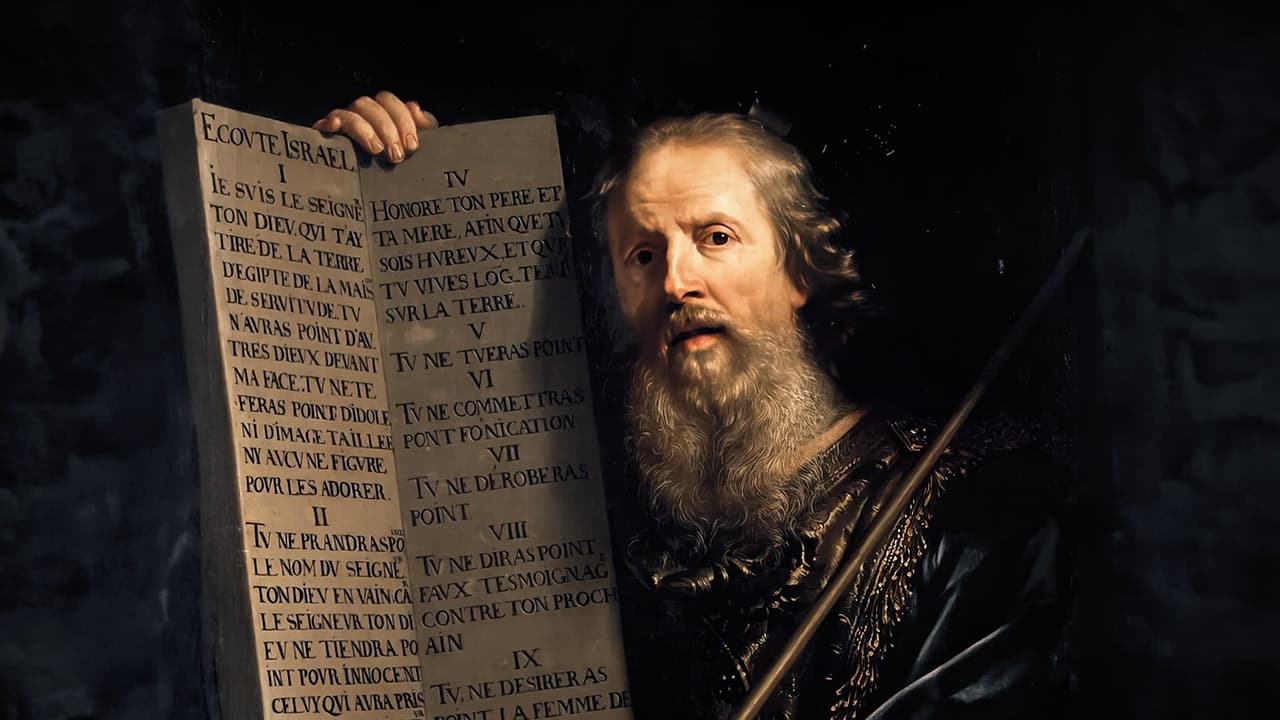 ECOVTE ISRAEL
I
IE SVIS LE SEIGNE
TON DIEV, QVI T'AY
TIRE DE LA TERRE
D'EGIPTE DE LA MAIS
DE SERVITVDE. TV
N'AVRAS POINT D'AV.
TRES DIEVX DEVANT
MA FACE. TV NE TE
FERAS POINT D'IDOLE
NI D'IMAGE TAILLEE
NY AVCVNE FIGVRE
POVR LES ADORER.
II
TV NE PRANDRAS PO
LE NOM DV SEIGNE
TON DIEV EN VAIN, CA
LE SEIGNEVR TON DI
EV NE TIENDRA PO
INT POVR INNOCENT
CELVY QVI AVRA PRIS
IV
HONORE TON PERE ET
TA MERE, AFIN QVE TV
SOIS HVREVX, ET QVE
TV VIVES LOG. TEMP
SVR LA TERRE.
V
TV NE TVERAS POINT
VI
TV NE COMMETTRAS
PONT FONICATION
VII
TV NE DEROBERAS
POINT
VIII
TV NE DIRAS POINT
FAVX TESMOIGNAG
CONTRE TON PROCH
AIN
IX
TV, NE DESIRERAS
POINT LA FEMME DE